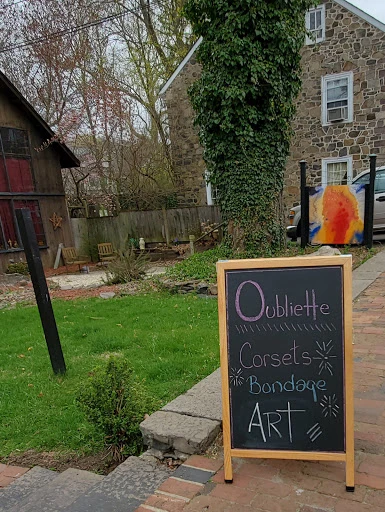 Oubliette
Corsets
Bondage
ART